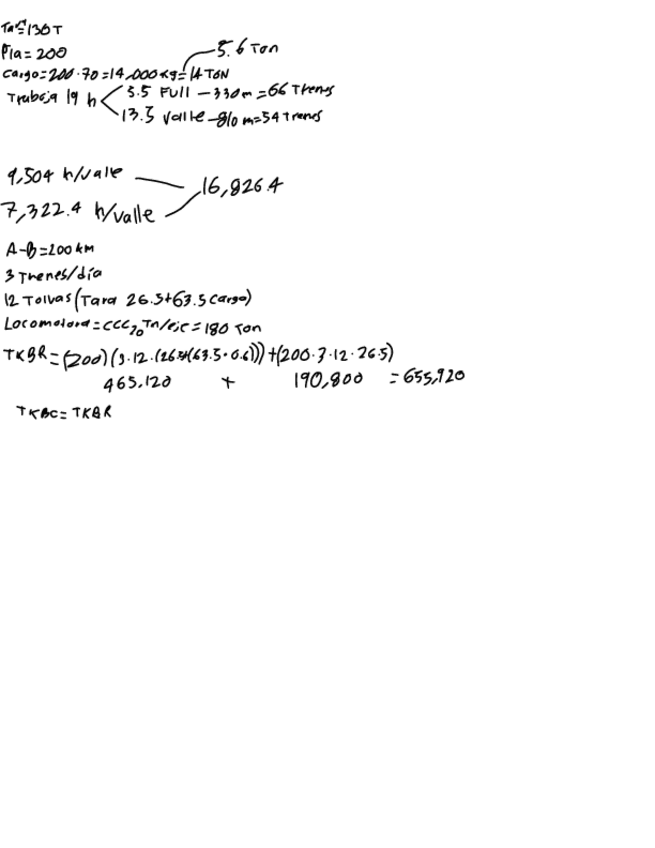 Tara=130T
Pla= 200
5.6 Ton
Cargo=200·70=14,000 kg=14 TON
Trabaja 19 h
5.5 Full - 330m = 66 Trenes
13.5 Valle - 810 m=54 trenes
9,504 h/valle
16,826.4
7,322.4 h/valle
A-B=200 km
3 Trenes/día
12 Tolvas (Tara 26.5+63.5 Cargo)
Locomotora=CCC20 Tn/eje = 180 Ton
TKBR=(200)(3·12·(26.5+(63.5·0.6)))+(200·3·12·26.5)
465,120 + 190,800 = 655,920
TKBC= TKBR